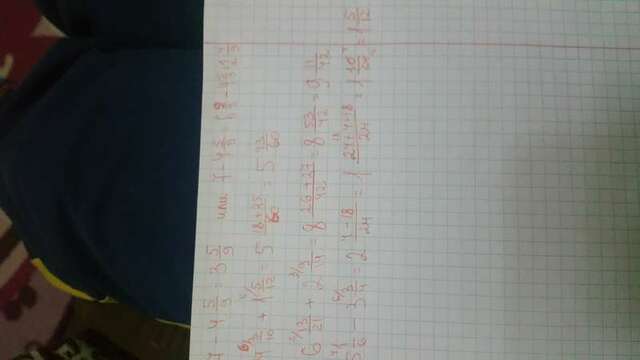 7 - 4 5/9 = 3 5/9 или 7 - 4 5/9 = 6 9/9 - 4 5/9 = 2 4/9
4 3/10 + 1 5/12 = 5 (18+25)/60 = 5 43/60
6 13/21 + 2 9/14 = 8 (26+27)/42 = 8 53/42 = 9 11/42
5 1/6 - 3 3/4 = 2 (4-18)/24 = 1 (24+4-18)/24 = 1 10/24 = 1 5/12